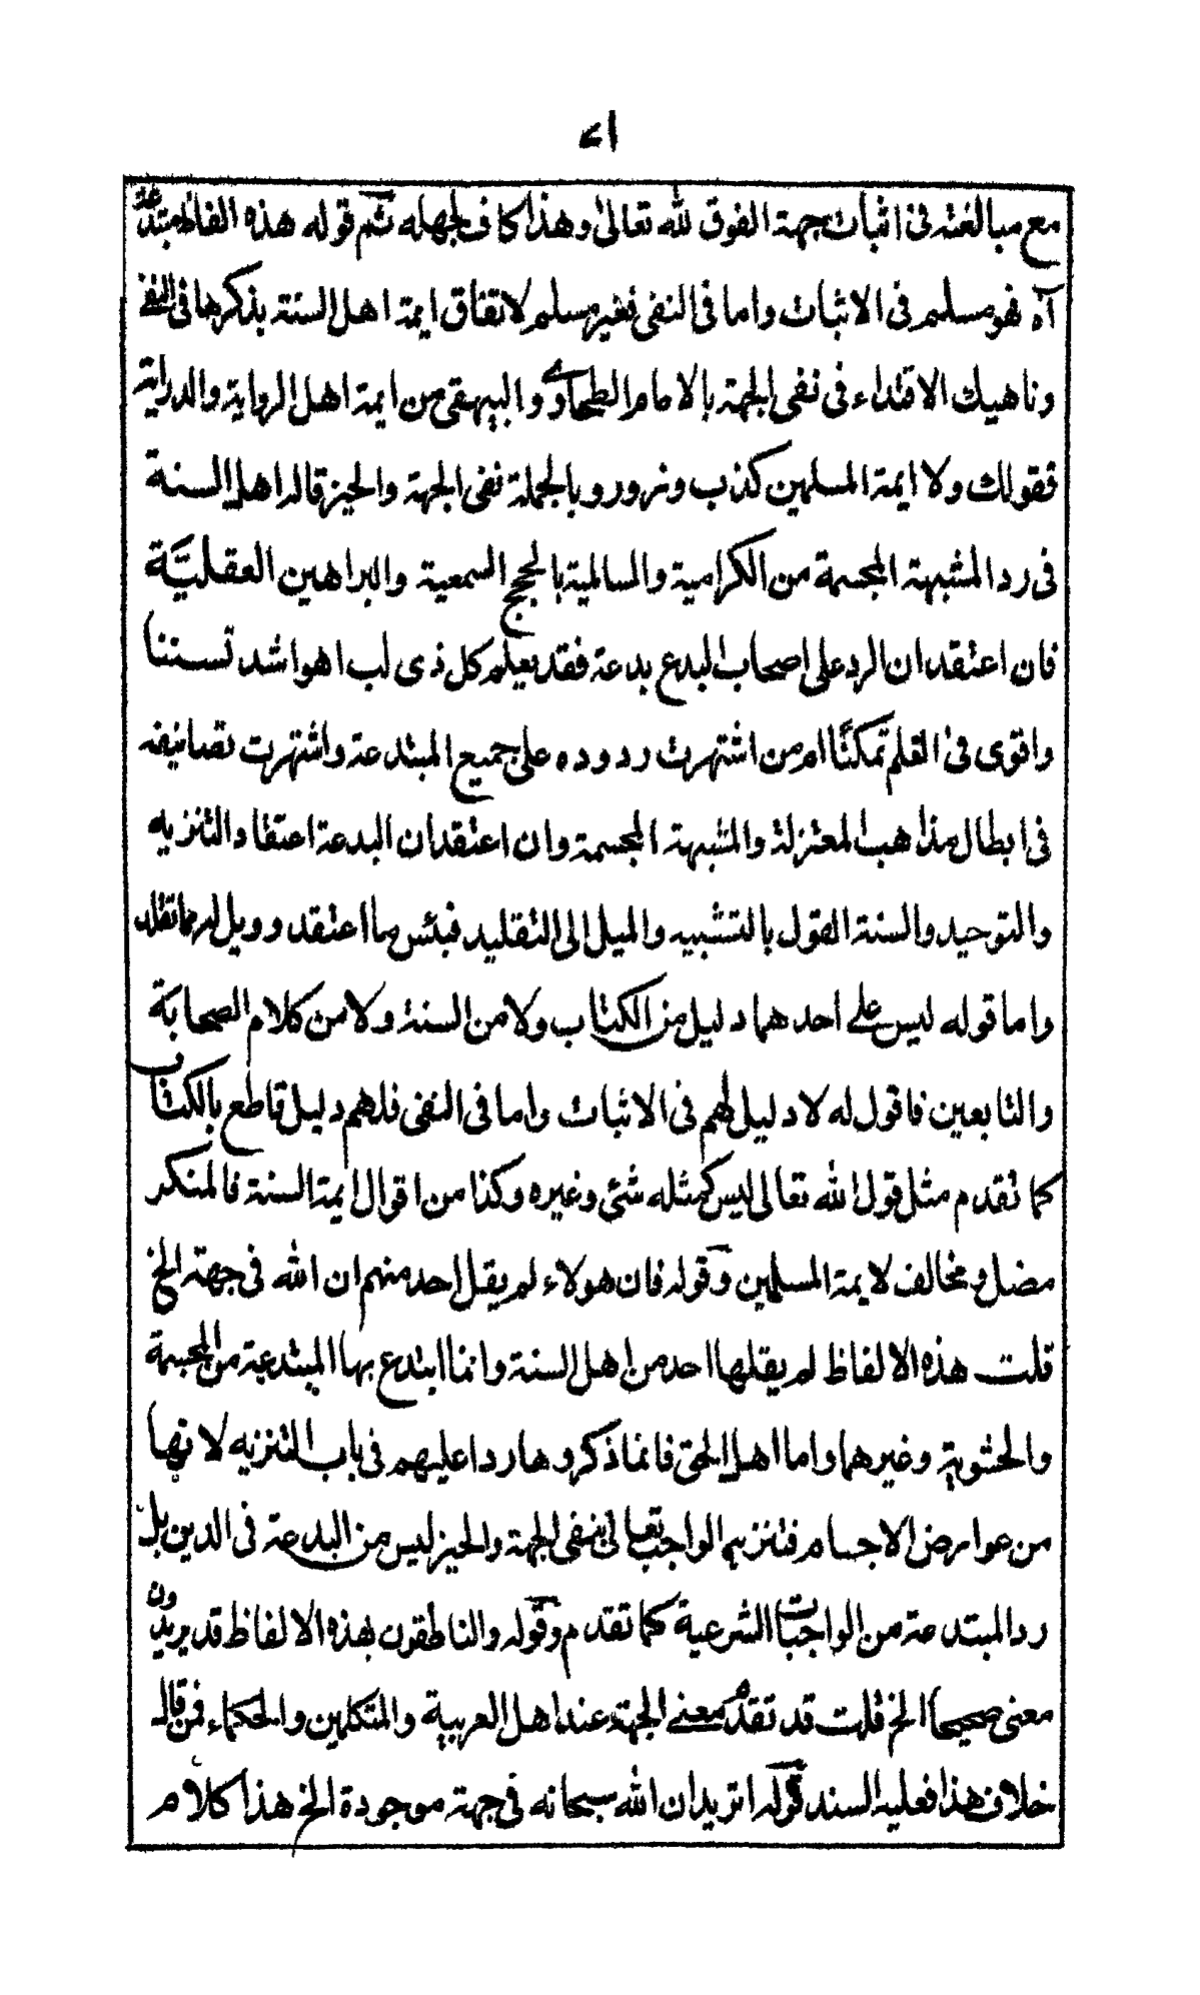 اے
مع مبالغته فى اثبات جهة الفوق لله تعالى وهذا كاف لجهله ثم قوله هذه الفاظ مبتدعة
آه فهو مسلم فى الاثبات واما فى النفى فغير مسلم لاتفاق ايمة اهل السنة بذكرها فى النفى
وناهيك الاقتداء فى نفى الجهة بالامام الطحاوى والبيهقى من ايمة اهل الرواية والدراية
فقولك ولا ايمة المسلمين كذب وزور وبالجملة نفى الجهة والحيز قاله اهل السنة
فى رد المشبهة المجسمة من الكرامية والسالمية بالحجج السمعية والبراهين العقليّة
فان اعتقد ان الرد على اصحاب البدع بدعة فقد يعلم كل ذى لب اهو اشد تسننا
واقوى فى القلم تمكنًا ام من اشتهرت ردوده على جميع المبتدعة واشتهرت تصانيفه
فى ابطال مذاهب المعتزلة والمشبهة المجسمة وان اعتقد ان البدعة اعتقاد التنزيه
والتوحيد والسنة القول بالتشبيه والميل الى التقليد فبئس ما اعتقد وويل له مما تقلد
واما قوله ليس على احدهما دليل من الكتاب ولا من السنة ولا من كلام الصحابة
والتابعين فاقول له لا دليل لهم فى الاثبات واما فى النفى فلهم دليل قاطع بالكتاب
كما تقدم مثل قول الله تعالى ليس كمثله شئ وغيره وكذا من اقوال ايمة السنة فالمنكر
مضل ومخالف لايمة المسلمين وقوله فان هولاء لم يقل احد منهم ان الله فى جهة الخ
قلت هذه الالفاظ لم يقلها احد من اهل السنة وانما ابتدع بها المبتدعة من المجسمة
والحشوية وغيرهما واما اهل الحق فانما ذكروها ردا عليهم فى باب التنزيه لانها
من عوارض الاجسام فتنزيه الواجب تعالى بنفى الجهة والحيز ليس من البدعة فى الدين بل
رد المبتدعة من الواجبات الشرعية كما تقدم وقوله والناطقون بهذه الالفاظ قد يريدون
معنى صحيحا الخ قلت قد تقدم معنى الجهة عند اهل العربية والمتكلمين والحكماء فمن قال
خلاف هذا فعليه السند قوله اتريد ان الله سبحانه فى جهة موجودة الخ هذا كلام